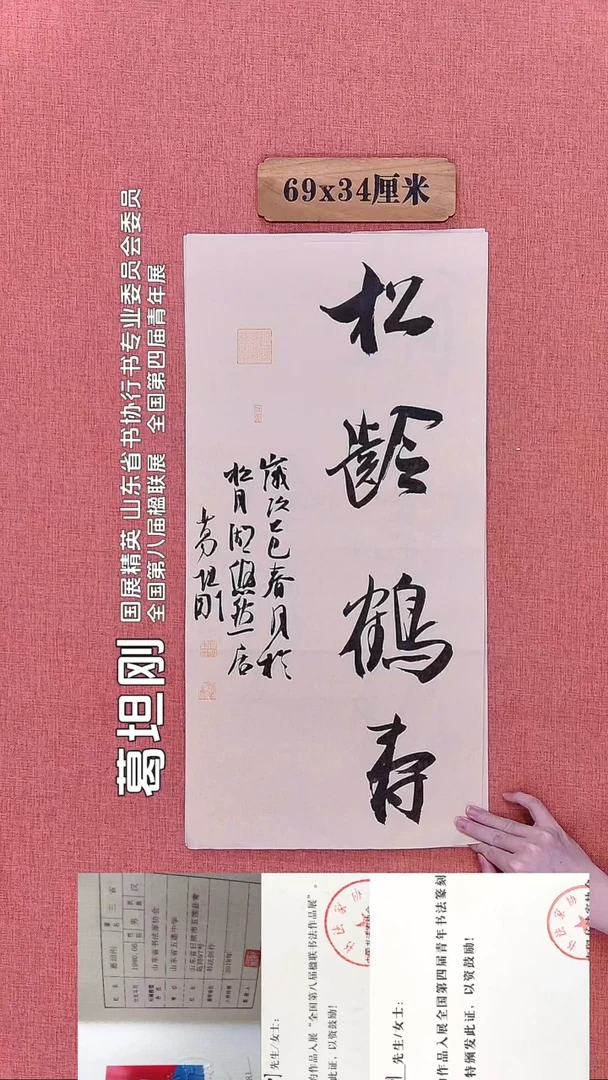 69x34厘米
松龄鹤寿
岁次乙巳春月于
松月湖悠然一居
葛坦刚
葛坦刚
国展精英 山东省书协行书专业委员会委员
全国第八届楹联展 全国第四届青年展
山东省书法家协会
山东省五莲中学
书法创作
先生/女士:
作品入展“全国第八届楹联书法作品展”。
此证，以资鼓励!
先生/女士:
作品入展全国第四届青年书法篆刻
特颁发此证，以资鼓励!